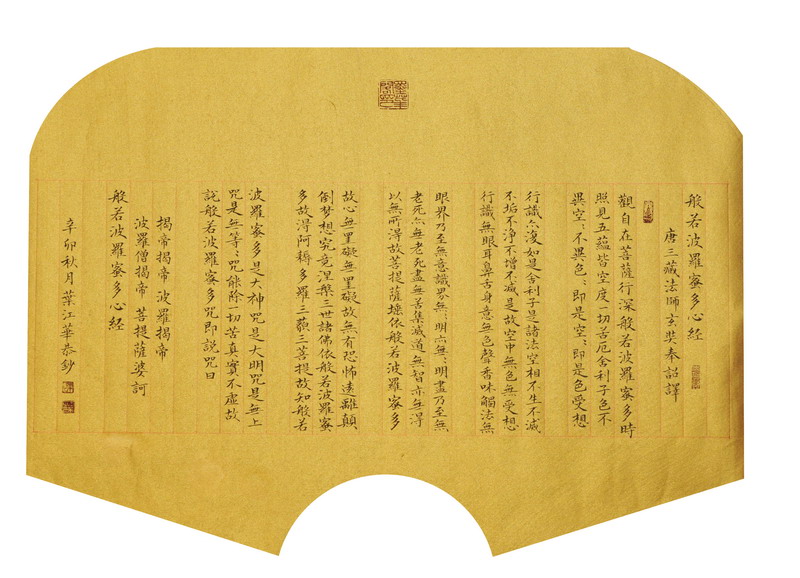 般若波羅蜜多心経
唐三藏法師玄奘奉詔譯
觀自在菩薩行深般若波羅蜜多時
照見五蘊皆空度一切苦厄舍利子色不
異空:不異色:即是空:即是色受想
行識亦復如是舍利子是諸法空相不生不滅
不垢不淨不增不減是故空中無色無受想
行識無眼耳鼻舌身意無色聲香味觸法無
眼界乃至無意識界無:明亦無:明盡乃至無
老死亦無老死盡無苦集滅道無智亦無得
以無所得故菩提薩埵依般若波羅蜜多
故心無罣礙無罣礙故無有恐怖遠離顛
倒梦想究竟涅槃三世諸佛依般若波羅蜜
多故得阿耨多羅三藐三菩提故知般若
波羅蜜多是大神咒是大明咒是無上
咒是無等:咒能除一切苦真實不虛故
說般若波羅蜜多咒即說咒曰
揭帝揭帝 波羅揭帝
波羅僧揭帝 菩提薩婆訶
般若波羅蜜多心経
辛卯秋月葉江華恭鈔